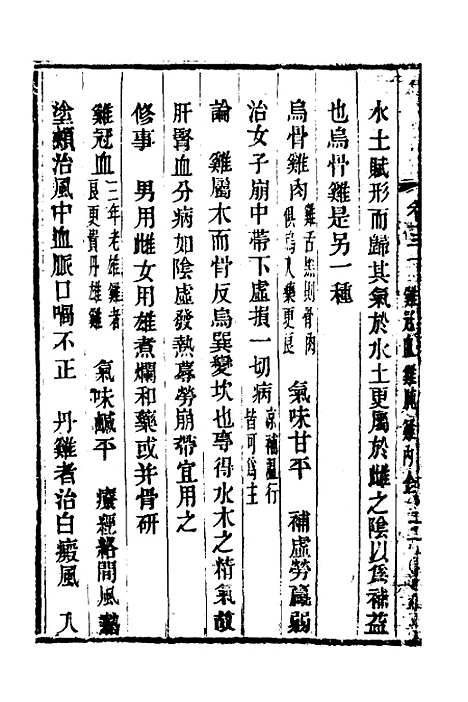 水土賦形而歸其氣於水土更屬於雌之陰以爲補益
也烏骨雞是另一種
烏骨雞肉 雞舌黑則骨肉俱烏人藥更良 氣味甘平 補虛勞羸弱
治女子崩中帶下虛損一切病 涼補溫行皆可爲主
論 雞屬木而骨反烏巽變坎也專得水木之精氣故
肝腎血分病如陰虛發熱蓐勞崩帶宜用之
修事 男用雌女用雄煮爛和藥或并骨研
雞冠血 三年老雄雞者良更貴丹雄雞 氣味鹹平 療經絡間風熱
塗頰治風中血脈口喎不正 丹雞者治白癜風 入
雞冠血 雞腸 雞內金